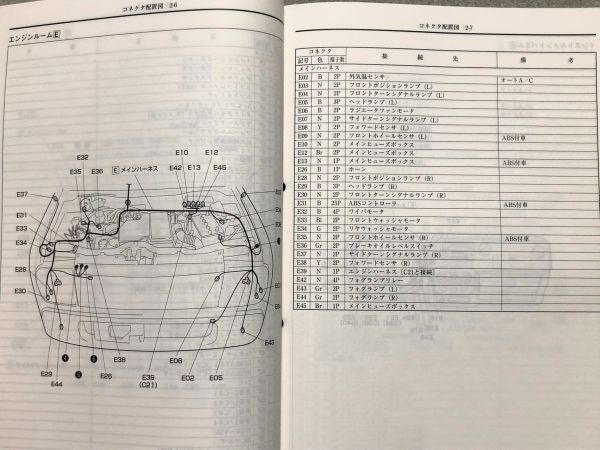 コネクタ配置図 2-6
エンジンルーム[E]
E32
E10 E12
E35 E36 [E] メインハーネス E42 E13 E45
E37
E31
E33
E34
E28
E30
E43
E38
E06
E29
E44
E26
E39
(C21)
E02
E05
コネクタ配置図 2-7
コネクタ 接続先 備考
記号 色 端子数
メインハーネス
E02 B 2P 外気温センサ オートA/C
E03 N 2P フロントポジションランプ (L)
E04 N 2P フロントターンシグナルランプ (L)
E05 B 3P ヘッドランプ (L)
E06 B 2P ラジエータファンモータ
E07 N 2P サイドターンシグナルランプ (L)
E08 Y 2P フォワードセンサ (L)
E09 N 2P フロントホイールセンサ (L) ABS付車
E10 N 2P メインヒューズボックス
E12 Br 2P メインヒューズボックス
E13 N 1P メインヒューズボックス ABS付車
E26 B 1P ホーン
E28 N 2P フロントポジションランプ (R)
E29 B 3P ヘッドランプ (R)
E30 N 2P フロントターンシグナルランプ (R)
E31 B 25P ABSコントローラ ABS付車
E32 B 4P ワイパモータ
E33 Bl 2P フロントウォッシャモータ
E34 G 2P リヤウォッシャモータ
E35 N 2P フロントホイールセンサ (R) ABS付車
E36 Gr 2P ブレーキオイルレベルスイッチ
E37 N 2P サイドターンシグナルランプ (R)
E38 Y 2P フォワードセンサ (R)
E39 N 1P エンジンハーネス [C21と接続]
E42 N 4P フォグランプリレー
E43 Gr 2P フォグランプ (L)
E44 Gr 2P フォグランプ (R)
E45 Br 1P メインヒューズボックス